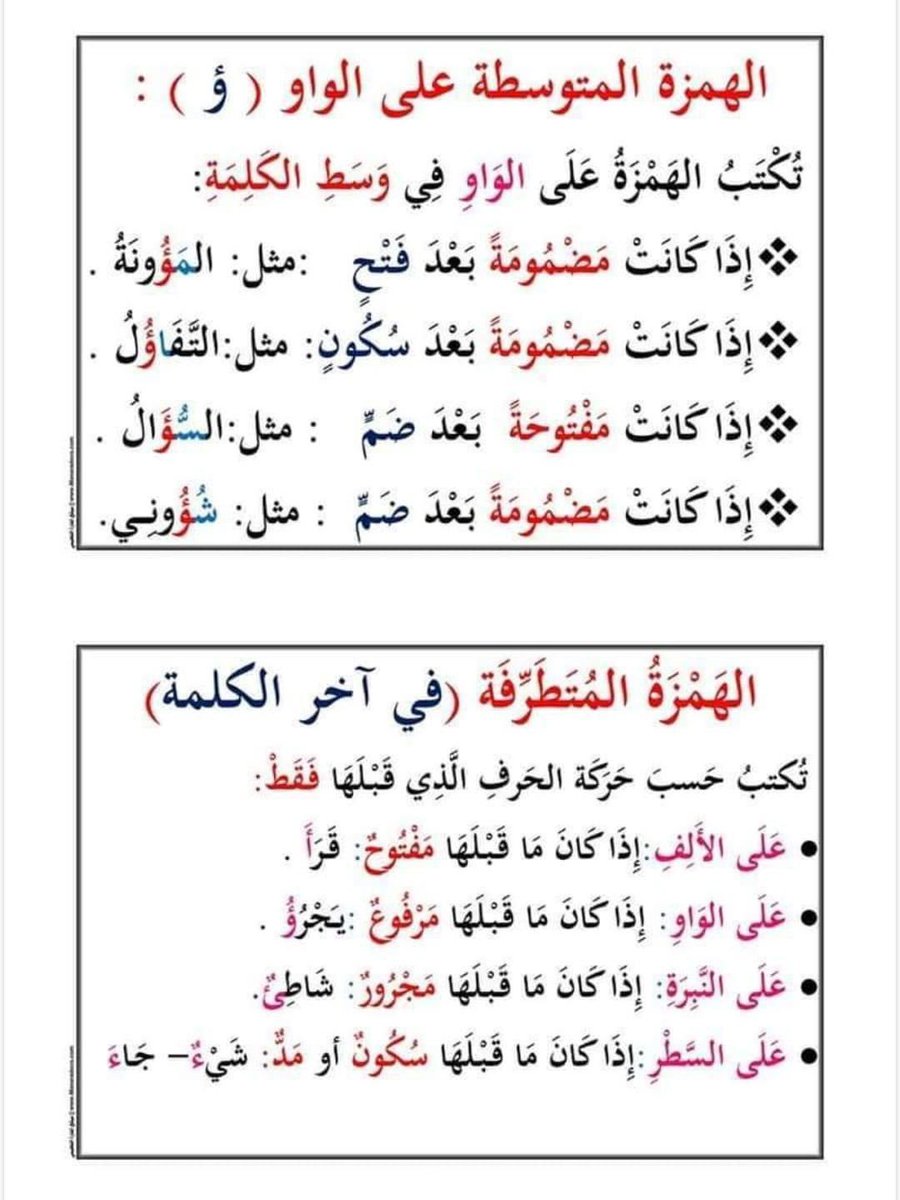 الهمزة المتوسطة على الواو ( ؤ ) :
تُكْتَبُ الهَمْزَةُ عَلَى الوَاوِ فِي وَسَطِ الكَلِمَةِ:
❖إِذَا كَانَتْ مَضْمُومَةً بَعْدَ فَتْحٍ :مثل: المَؤُونَةُ .
❖إِذَا كَانَتْ مَضْمُومَةً بَعْدَ سُكُونٍ: مثل:التَّفَاؤُلُ .
❖إِذَا كَانَتْ مَفْتُوحَةً بَعْدَ ضَمٍّ : مثل:السُّؤَالُ .
❖إِذَا كَانَتْ مَضْمُومَةً بَعْدَ ضَمٍّ : مثل: شُؤُونِـي.
الهَمْزَةُ المُتَطَرِّفَة (في آخر الكلمة)
تُكتبُ حَسبَ حَرَكَة الحَرفِ الَّذِي قَبْلَهَا فَقَطْ:
● عَلَى الأَلِفِ:إِذَا كَانَ مَا قَبْلَهَا مَفْتُوحٌ: قَرَأَ .
● عَلَى الوَاوِ: إِذَا كَانَ مَا قَبْلَهَا مَرْفُوعٌ :يَجْرُؤُ .
● عَلَى النَّبِرَةِ: إِذَا كَانَ مَا قَبْلَهَا مَجْرُورٌ: شَاطِئٌ.
● عَلَى السَّطْرِ:إِذَا كَانَ مَا قَبْلَهَا سُكُونٌ أو مَدٌّ: شَيْءٌ– جَاءَ